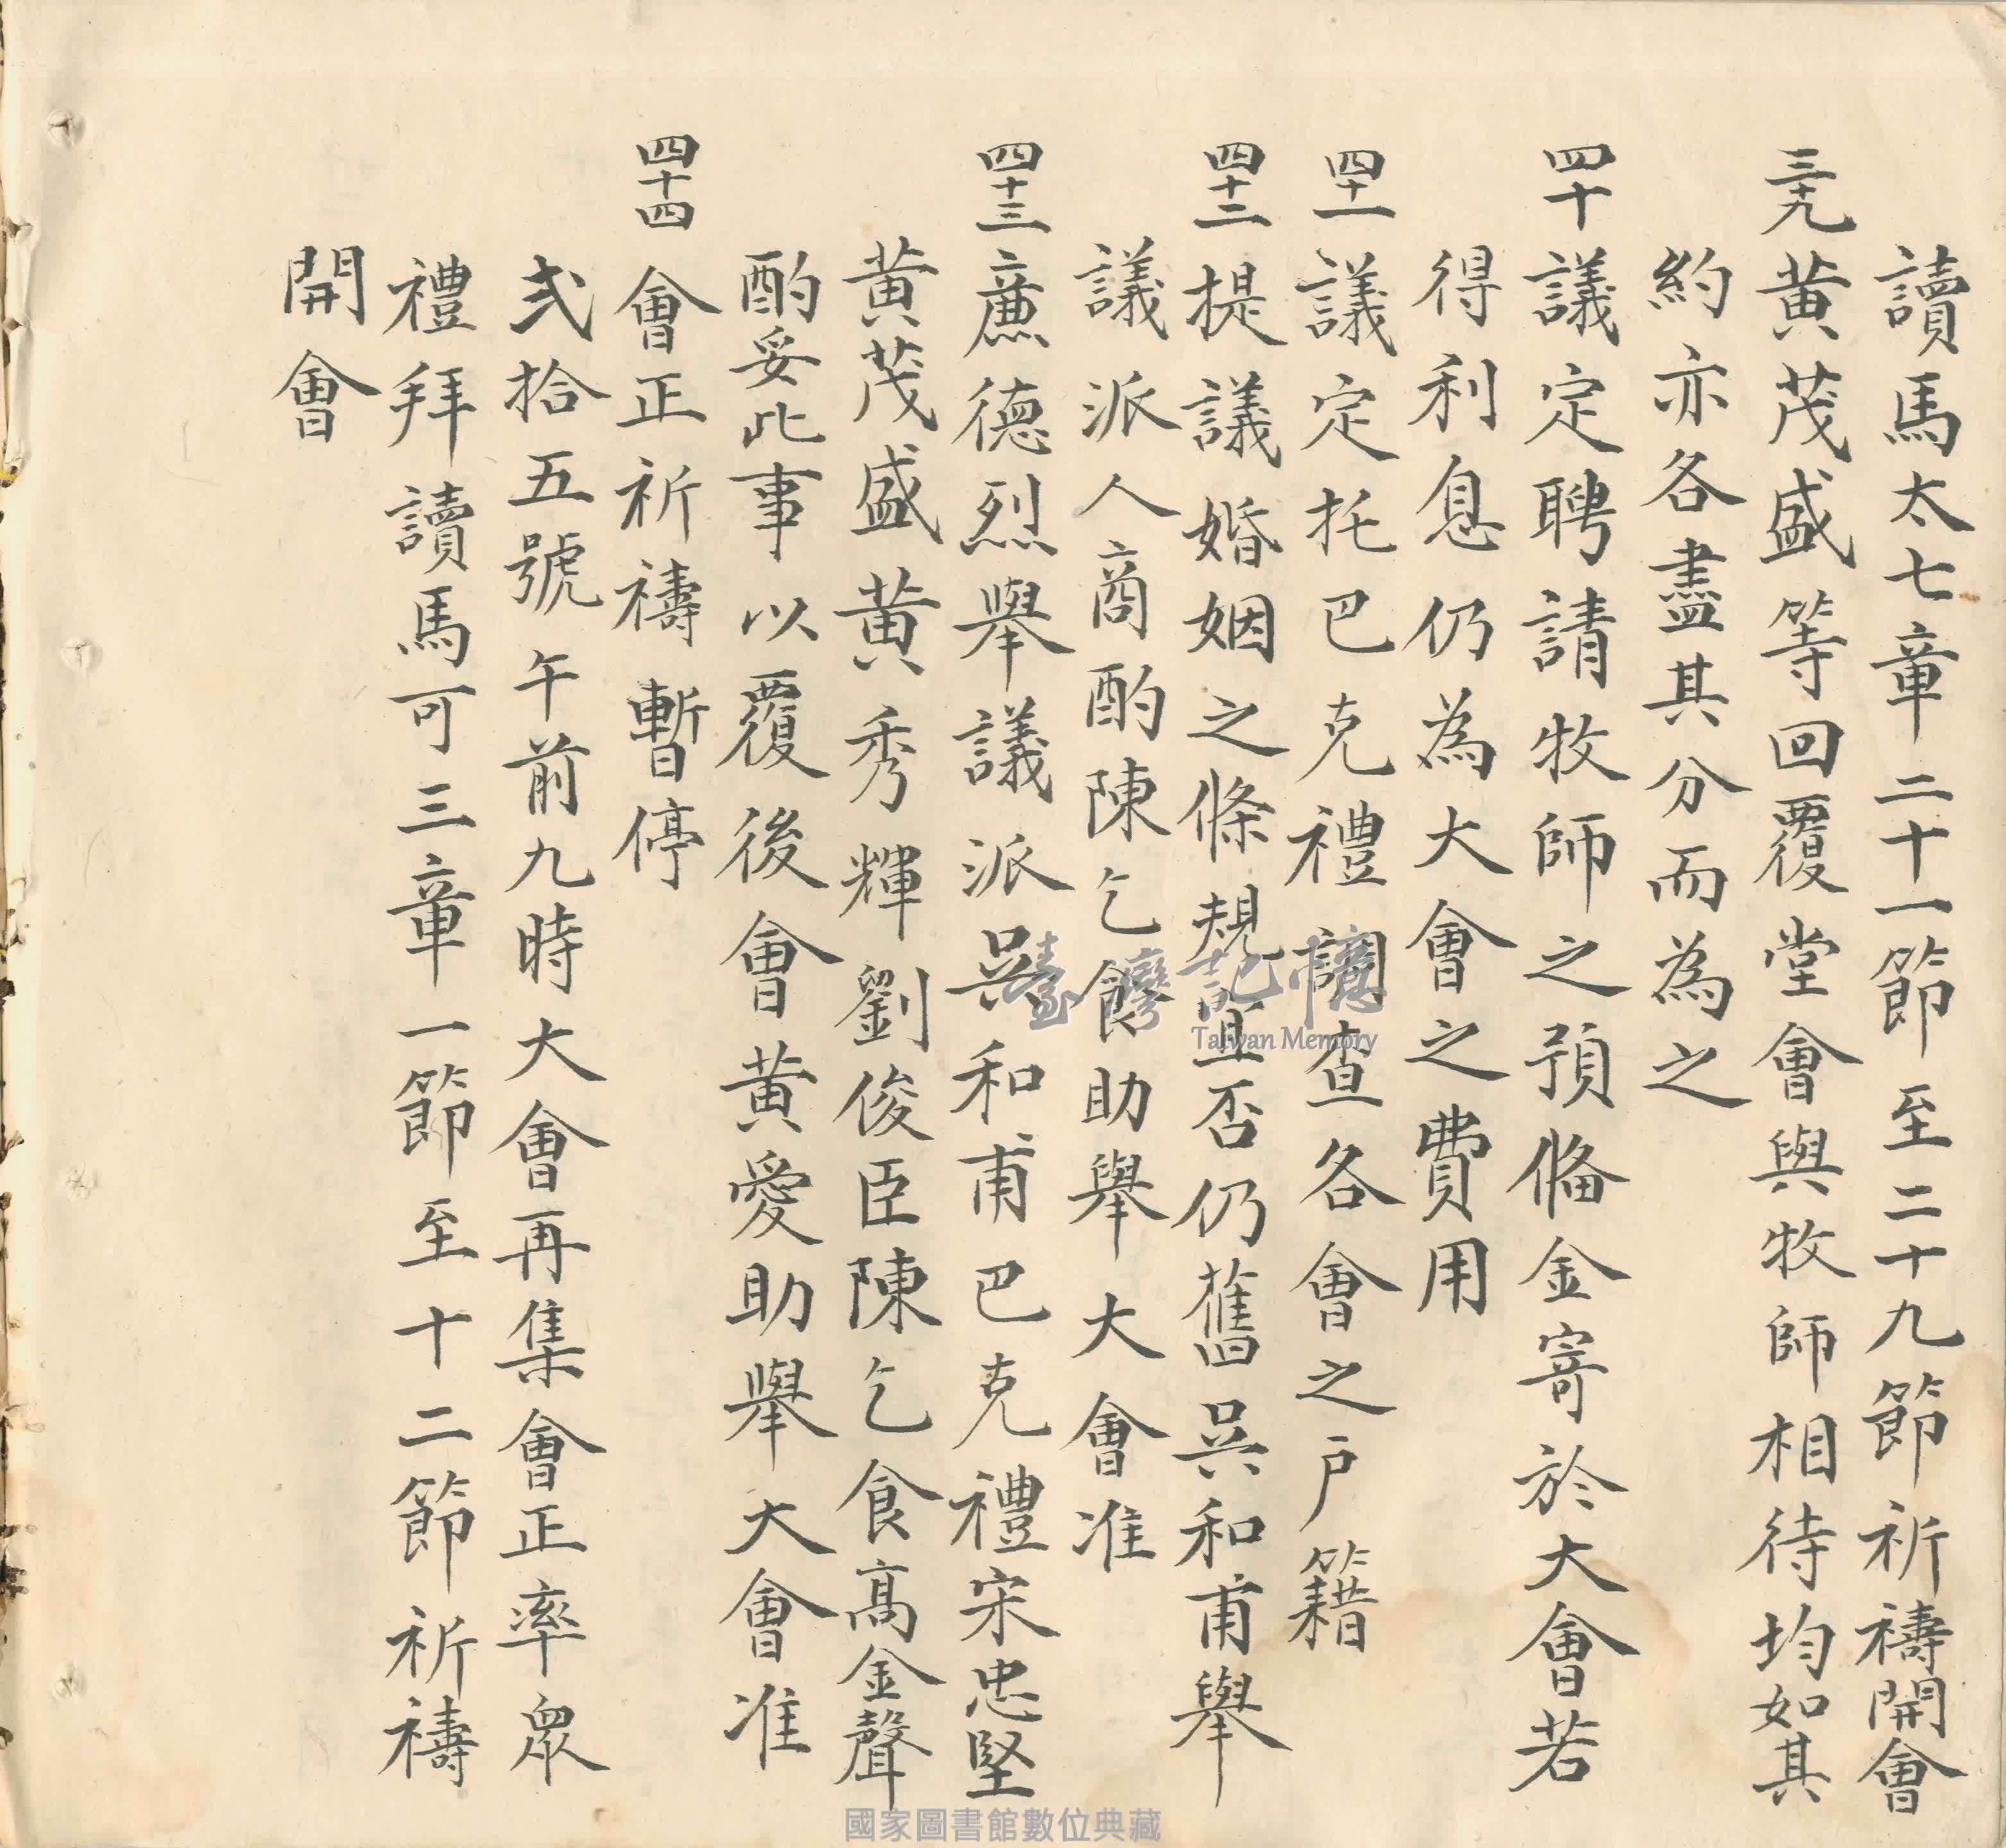 讀馬太七章二十一節至二十九節祈禱開會
三十九黃茂盛等回覆堂會與牧師相待均如其
約亦各盡其分而為之
四十議定聘請牧師之預備金寄於大會若
得利息仍為大會之費用
四十一議定托巴克禮調查各會之戶籍
四十二提議婚姻之條規宜否仍舊吳和甫舉
議派人商酌陳乞食助舉大會准
四十三廉德烈舉議派吳和甫巴克禮宋忠堅
黃茂盛黃秀輝劉俊臣陳乞食高金聲
酌妥此事以覆後會黃愛助舉大會准
四十四會正祈禱暫停
弍拾五號午前九時大會再集會正率眾
禮拜讀馬可三章一節至十二節祈禱
開會
臺灣記憶
Taiwan Memory
國家圖書館數位典藏